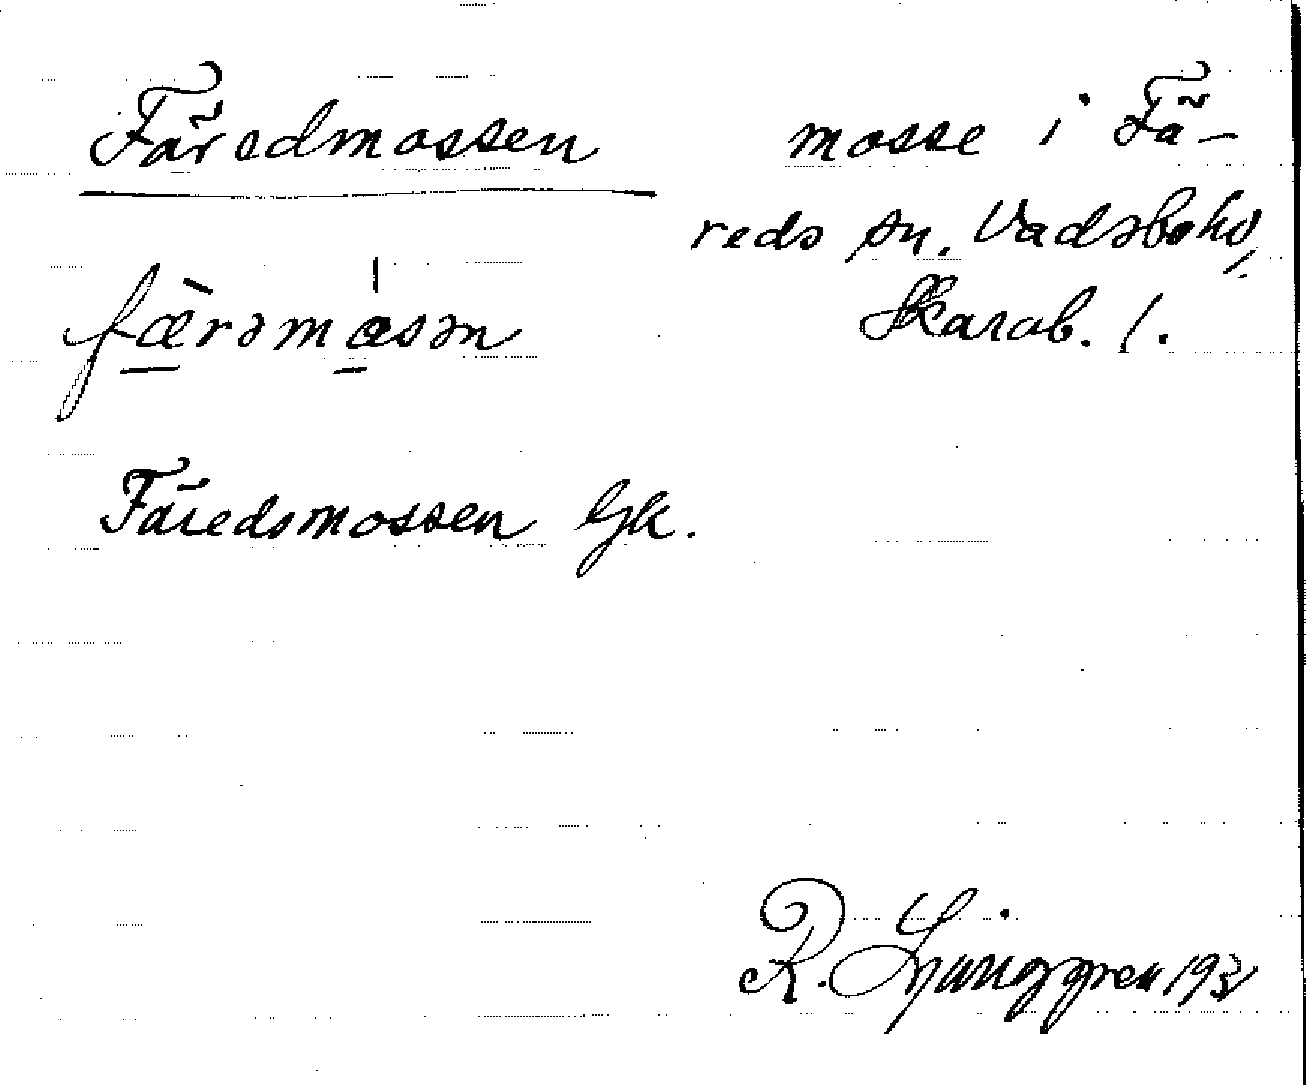 Färedmossen
mosse i Fä-
reds sn. Vadsbohd,
Skarab. l.
færəmɑsən
Färedsmossen Gk.
R. Ljunggren 1931